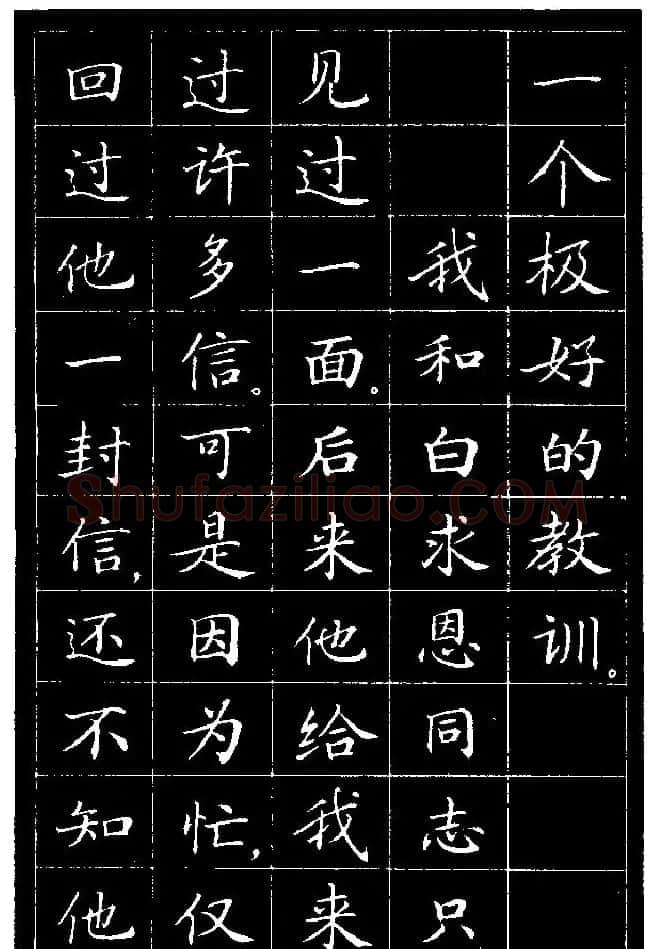 一个极好的教训。
我和白求恩同志只
见过一面。后来他给我来
过许多信。可是因为忙，仅
回过他一封信，还不知他
Shufaziliao.COM